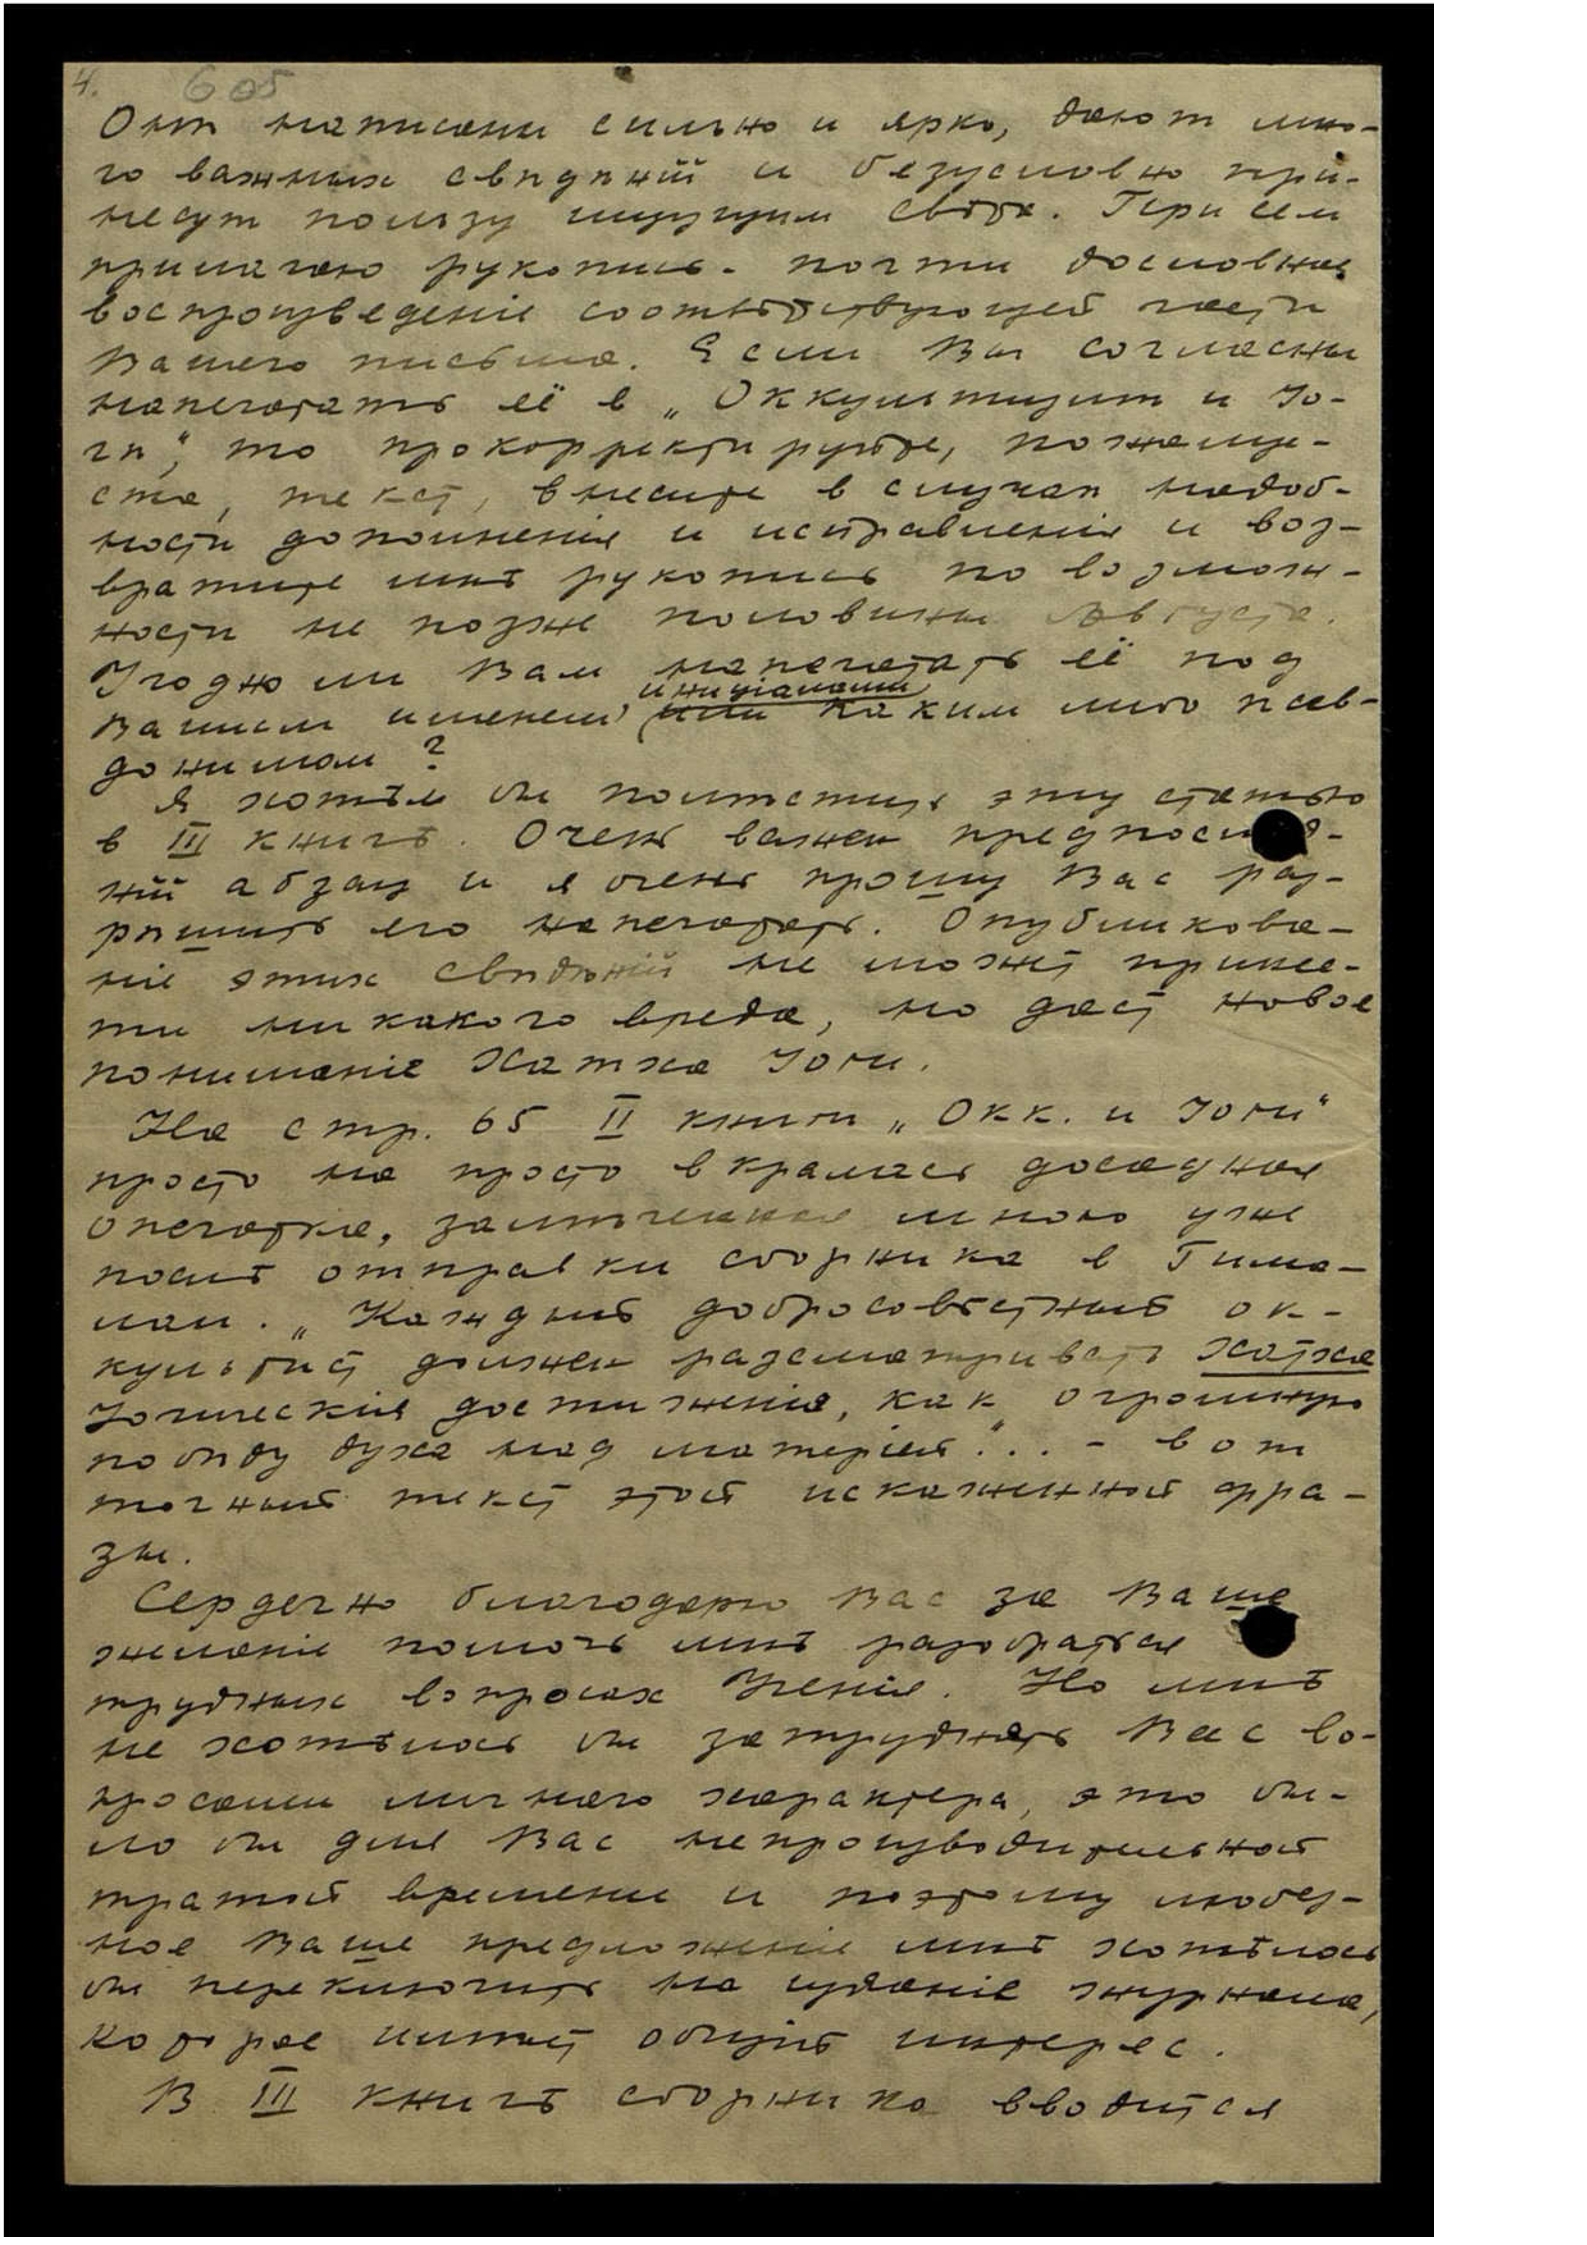 4. 605
Онѣ написаны сильно и ярко, дают мно-
го важных свѣдѣній и безусловно при-
несут пользу ищущим свѣта. При сем
прилагаю рукопись - почти дословное
воспроизведеніе соотвѣтствующей части
Вашего письма. Если Вы согласны
напечатать её в „Оккультизм и Іо-
гѣ", то прокорректируйте, пожалуй-
ста, текст, внесите в случаѣ надоб-
ности дополненія и исправленія и воз-
вратите мнѣ рукопись по возмож-
ности не позже половины Августа.
Угодно ли Вам напечатать её под
инициалами
Вашим именем, или каким либо псев-
донимом?
Я хотѣл бы помѣстить эту статью
в III книгѣ. Очень важен предпослѣд-
ній абзац и я очень прошу Вас раз-
рѣшить его напечатать. Опубликова-
ніе этих свѣдѣній не может принес-
ти никакого вреда, но даст новое
пониманіе Хатха Іоги.
На стр. 65 II книги „Окк. и Іоги"
просто на просто вкралась досадная
опечатка, замѣченная мною уже
послѣ отправки сборника в Гима-
лаи. „Каждый добросовѣстный ок-
культист должен разсматривать хатха
іогическія достиженія, как огромную
побѣду духа над матеріей"... - вот
точный текст этой искаженной фра-
зы.
Сердечно благодарю Вас за Ваше
желаніе помочь мнѣ разобраться
трудных вопросах Ученія. Но мнѣ
не хотѣлось бы затруднять Вас во-
просами личнаго характера, это бы-
ло бы для Вас непроизводительной
тратой времени и поэтому любез-
ное Ваше предложеніе мнѣ хотѣлось
бы переключить на изданіе журнала,
которое имѣет общій интерес.
В III книгѣ сборника вводится